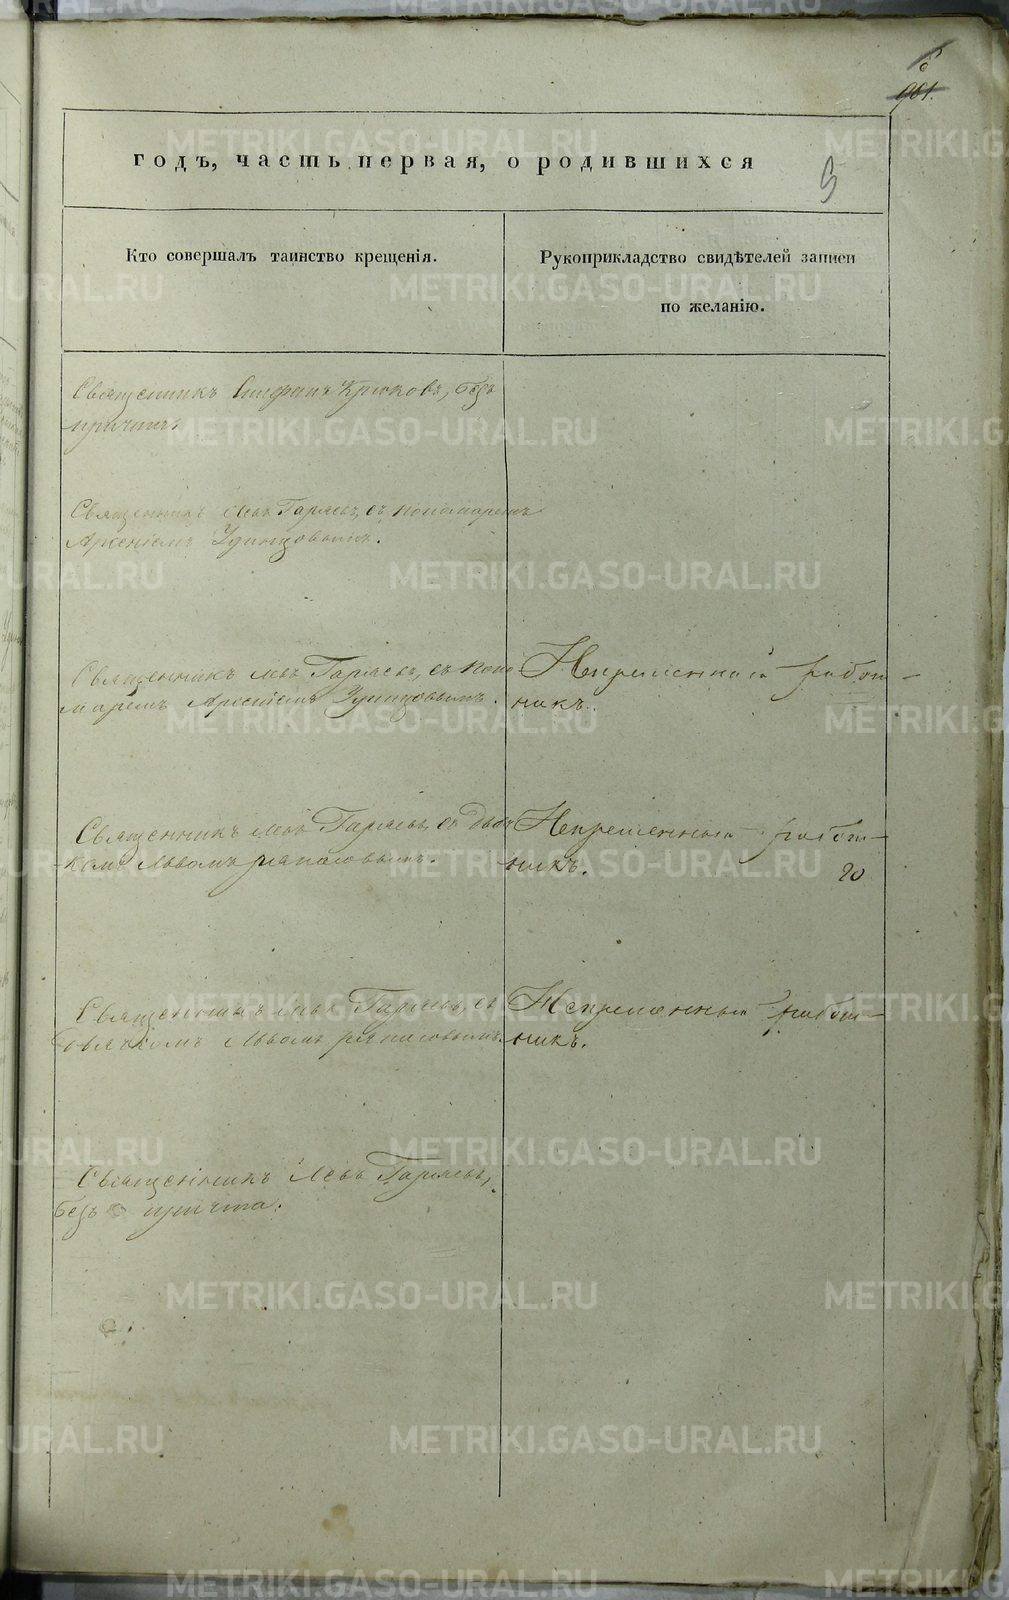 6
961.
годъ, часть первая, о родившихся
5
Кто совершалъ таинство крещенія.
Рукоприкладство свидѣтелей записи
по желанію.
Священникъ Стефанъ Крюковъ, безъ
причта.
Священникъ Левъ Гаряевъ, съ пономаремъ
Арсеніемъ Удинцовымъ.
Священникъ Левъ Гаряевъ, съ поно-
маремъ Арсеніемъ Удинцовымъ.
Непременный работ-
никъ.
Священникъ Левъ Гаряевъ, съ дьяч-
комъ Львомъ
Непременный работ-
никъ.
20
Священникъ Левъ Гаряевъ, съ
Львомъ
Непременный работ-
никъ.
Священникъ Левъ Гаряевъ,
безъ причта.
METRIKI.GASO-URAL.RU